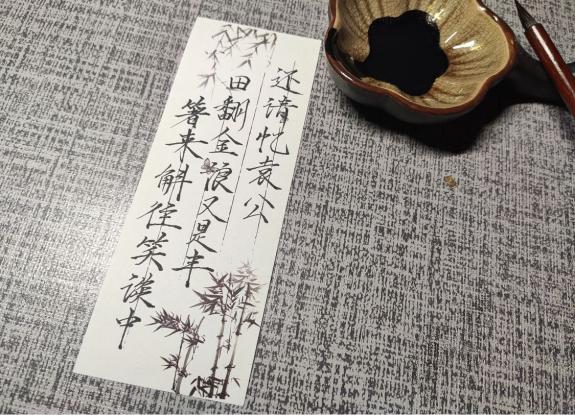 还请忆袁公
田翻金浪又是丰
箸来斛往笑谈中